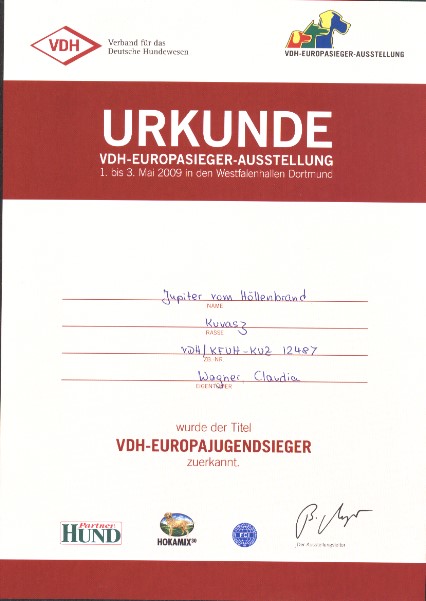 VDH
Verband für das
Deutsche Hundewesen
VDH-EUROPASIEGER-AUSSTELLUNG
URKUNDE
VDH-EUROPASIEGER-AUSSTELLUNG
1. bis 3. Mai 2009 in den Westfalenhallen Dortmund
Jupiter vom Höllenbrand
NAME
Kuvasz
RASSE
VDH/KFUH-KUZ 12487
ZB.-NR.
Wagner, Claudia
EIGENTÜMER
wurde der Titel
VDH-EUROPAJUGENDSIEGER
zuerkannt.
Partner
HUND
HOKAMIX30
FCI
Der Ausstellungsleiter